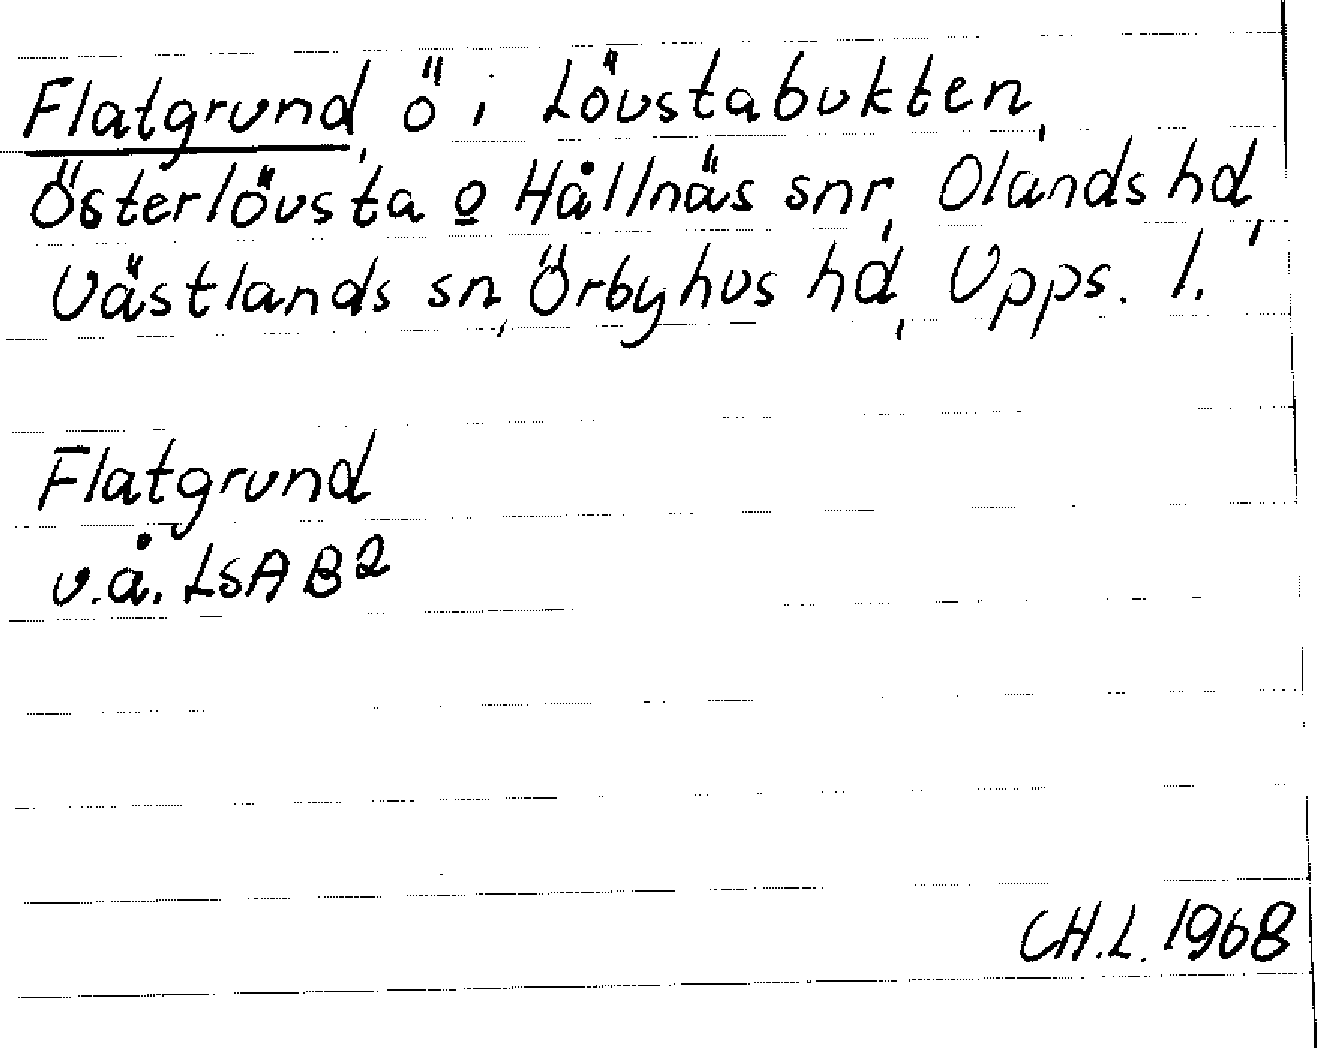 Flatgrund, ö i Lövstabukten,
Österlövsta o Hållnäs snr, Olands hd,
Västlands sn, Örbyhus hd, Upps. l.
Flatgrund
v.å. LSA B2
CH.L. 1968